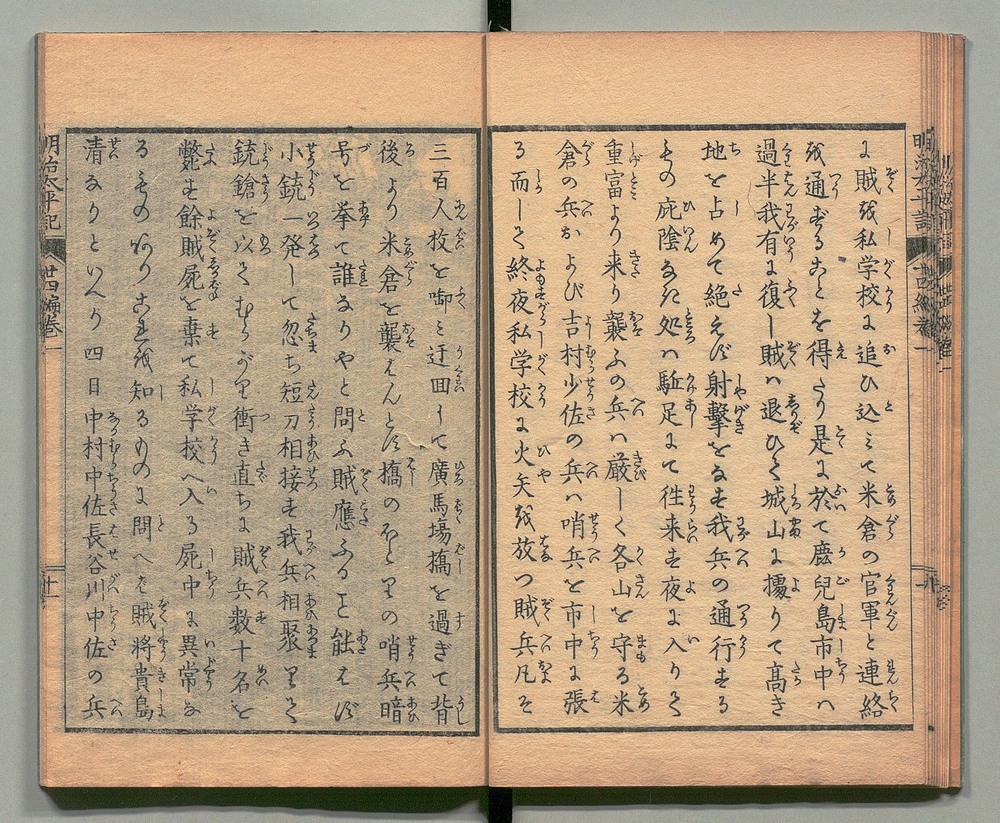 に賊を私学校に追ひ込ミて米倉の官軍と連絡
を通ずることを得たり是に於て鹿児島市中ハ
過半我有に復し賊ハ退ひて城山に據りて高き
地を占めて絶えず射撃をなす我兵の通行する
もの庇陰なき処ハ駈足にて徃来す夜に入りて
重富より来り襲ふの兵ハ厳しく各山を守る米
倉の兵および吉村少佐の兵ハ哨兵を市中に張
る而して終夜私学校に火矢を放つ賊兵凡そ
三百人枚を啣ミ迂回して廣馬塲撟を過ぎて背
後より米倉を襲はんとす撟のほとりの哨兵暗
号を挙て誰なりやと問ふ賊應ふること能はず
小銃一発して忽ち短刀相接す我兵相聚りて
銃鎗を以てむらがり衝き直ちに賊兵数十名を
斃す餘賊屍を棄て私学校へ入る屍中に異常な
るものありこれを知るものに問へば賊將貴島
清なりといへり四日中村中佐長谷川中佐の兵
明治太平記
廿四編巻一
十一